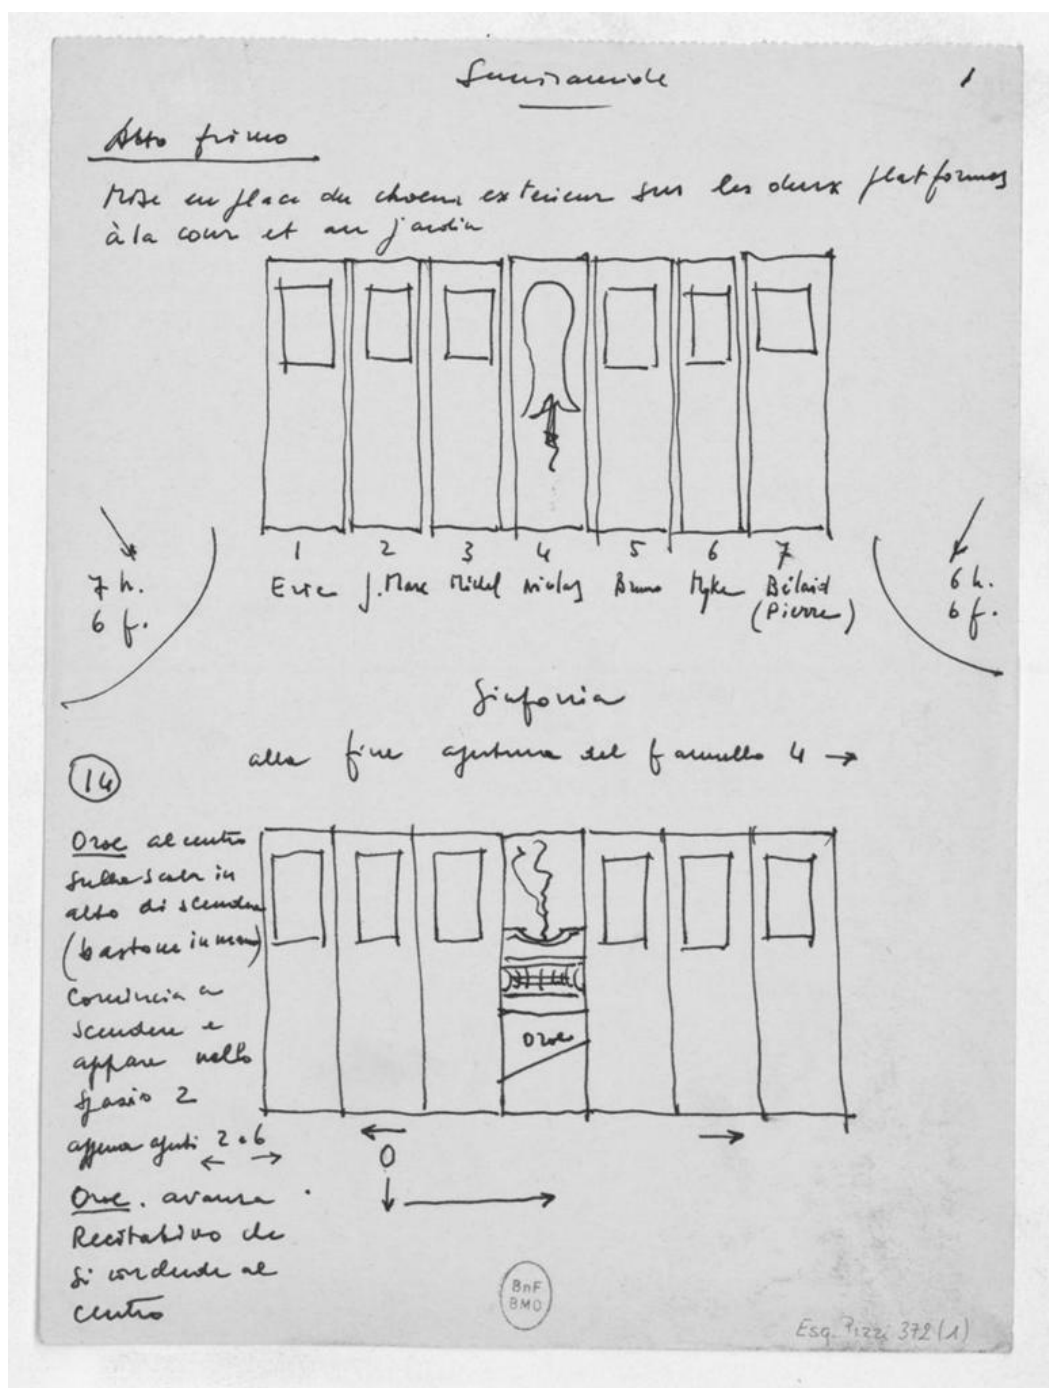 Semiramide
1
Atto primo
Mise en place du choeur exterieur sur les deux platformes
à la cour et au jardin
1 2 3 4 5 6 7
Eric J. Marc Michel Nicolas Bruno Myke Bélaid
(Pierre)
7 h.
6 f.
6 h.
6 f.
Sinfonia
alla fine apertura del pannello 4 →
14
Oroe al centro
sulla scala in
alto di scendere
(bastone in mano)
Comincia a
scendere e
appare nello
spazio 2
appena aperti 2 e 6
← →
Oroe. avanza
Recitativo che
si conclude al
centro
Oroe
← →
O
↓ →
BnF
BMO
Esq. Pizzi 372 (1)